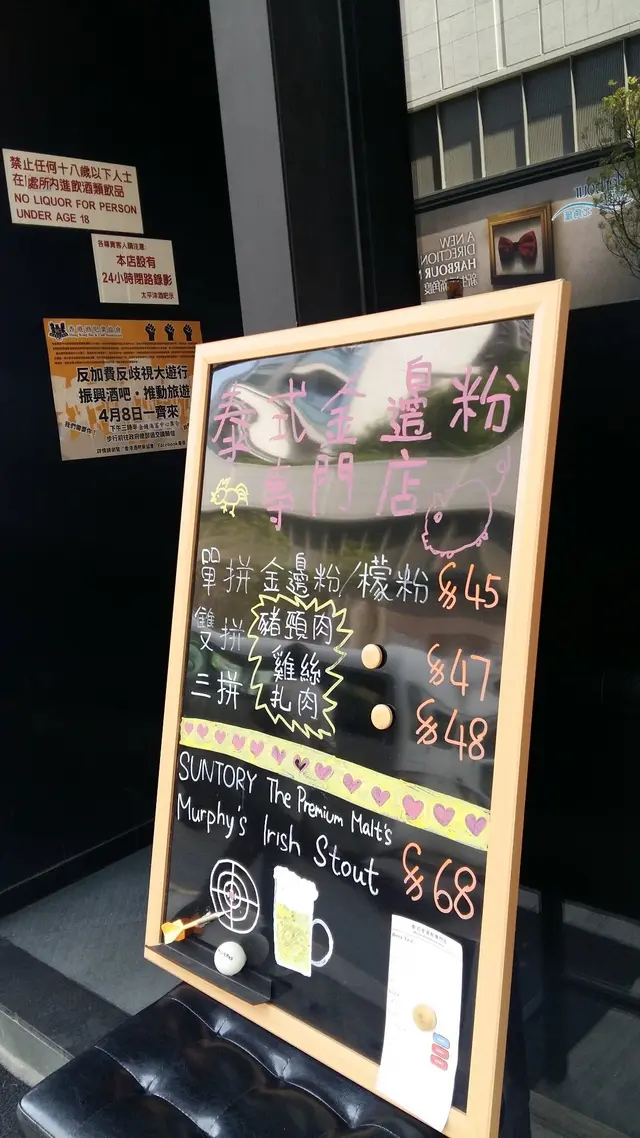 禁止任何十八歲以下人士
在此處所內進飲酒類飲品
NO LIQUOR FOR PERSON
UNDER AGE 18
各尊貴客人請注意:
本店設有
24小時閉路錄影
太平洋酒吧示
香港酒吧業協會
反加費反歧視大遊行
振興酒吧・推動旅遊
4月8日一齊來
A NEW
DIRECTION
HARBOUR
泰式金邊粉
專門店
單拼 金邊粉/檬粉 $45
雙拼 豬頸肉 $47
雞絲
三拼 扎肉 $48
SUNTORY The Premium Malt's
Murphy's Irish Stout $68